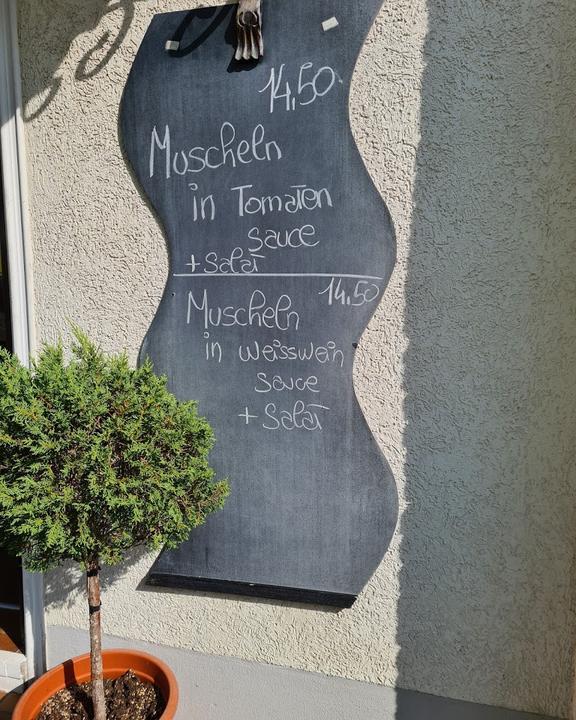 14,50
Muscheln
in Tomaten
Sauce
+ Salat
14.50
Muscheln
in weisswein
Sauce
+ Salat